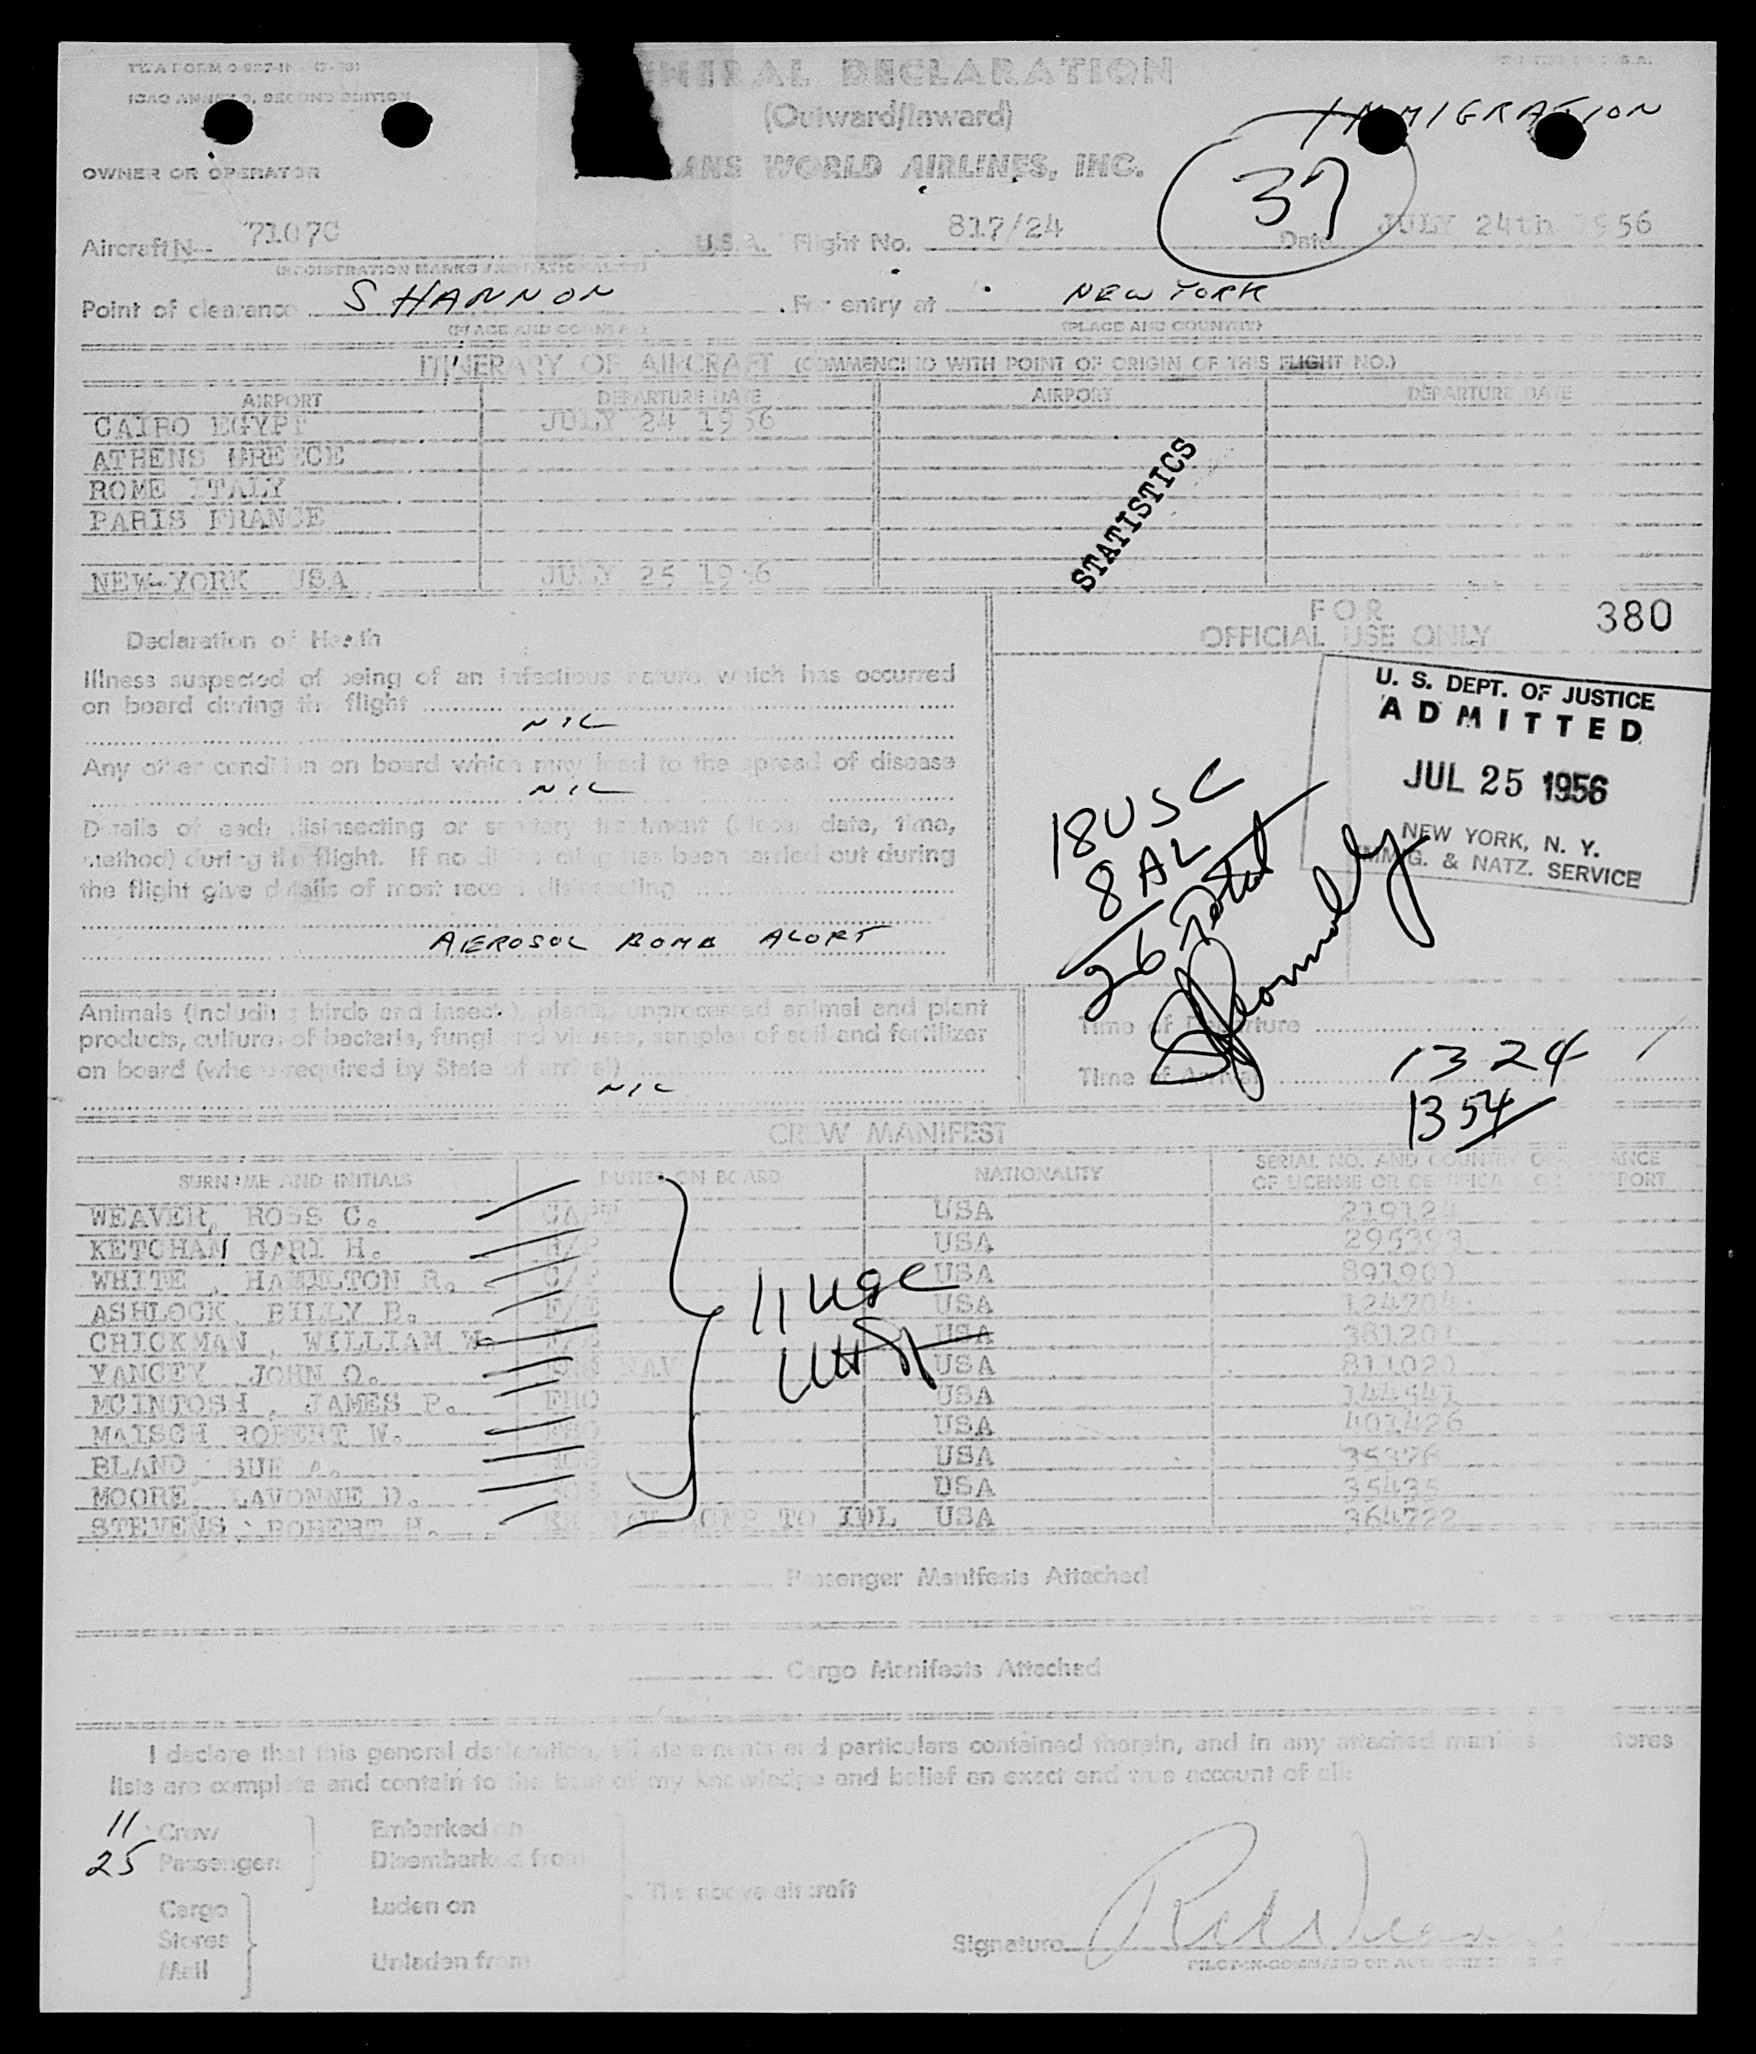 TWA FORM
ICAO ANNEX 9, SECOND EDITION
NERAL DECLARATION
(Outward/Inward)
IMMIGRATION
OWNER OR OPERATOR
ANS WORLD AIRLINES, INC.
37
Aircraft N- 7107C U.S.A. Flight No. 817/24 Date JULY 24th 1956
(REGISTRATION MARKS AND NATIONALITY)
Point of clearance SHANNON For entry at NEW YORK
(PLACE AND COUNTRY) (PLACE AND COUNTRY)
ITINERARY OF AIRCRAFT (COMMENCING WITH POINT OF ORIGIN OF THIS FLIGHT NO.)
AIRPORT DEPARTURE DATE AIRPORT DEPARTURE DATE
CAIRO EGYPT JULY 24 1956
ATHENS GREECE
ROME ITALY
PARIS FRANCE
STATISTICS
NEW-YORK USA JULY 25 1956
FOR
OFFICIAL USE ONLY
380
Declaration of Health
Illness suspected of being of an infectious nature which has occurred
on board during the flight
NIL
Any other condition on board which may lead to the spread of disease
NIL
Details of each disinsecting or sanitary treatment (place, date, time,
method) during the flight. If no disinsecting has been carried out during
the flight give details of most recent disinsecting
AEROSOL BOMB ALOFT
U. S. DEPT. OF JUSTICE
ADMITTED
JUL 25 1956
NEW YORK, N. Y.
IMMIG. & NATZ. SERVICE
18 USC
8 AL
26 Total
Animals (including birds and insects), plants, unprocessed animal and plant
products, cultures of bacteria, fungi and viruses, samples of soil and fertilizer
on board (where required by State of arrival)
NIL
Time of Departure
Time of Arrival 1324
1354
CREW MANIFEST
SURNAME AND INITIALS DUTIES ON BOARD NATIONALITY SERIAL NO. AND COUNTRY OF ISSUANCE
OF LICENSE OR CERTIFICATE OR PASSPORT
WEAVER, ROSS C. CAPT USA 219124
KETCHAM H. USA 295393
WHITE, HAMILTON R. USA
ASHLOCK, BILLY B. F/E USA 124204
CRICKMAN, WILLIAM W. USA 381201
YANCEY, JOHN O. NAV USA 811020
MCINTOSH, JAMES P. USA
MAISCH ROBERT W. USA 401426
BLAND, SUE A. USA 35376
MOORE, LAVONNE D. USA 35435
STEVENS, ROBERT H. TO IDL USA 364722
11 USC
Passenger Manifests Attached
Cargo Manifests Attached
I declare that this general declaration, all statements and particulars contained therein, and in any attached manifests stores
lists are complete and contain to the best of my knowledge and belief an exact and true account of all:
11 Crew Embarked on
25 Passengers Disembarked from
The above aircraft
Cargo Laden on
Stores
Mail Unladen from
Signature
PILOT-IN-COMMAND OR AUTHORIZED